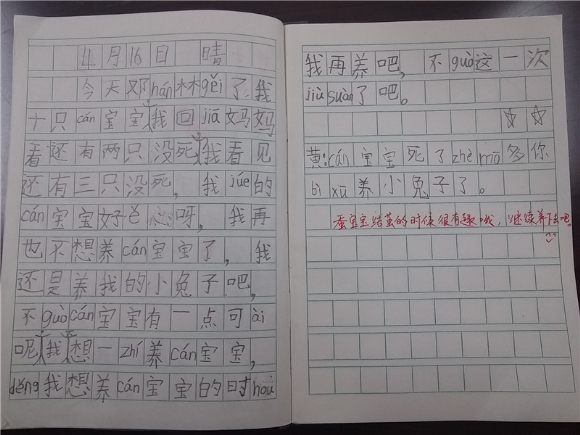 4月16日 晴
今天邓hán林林gěi了我
十只cán宝宝，我回jiā妈妈
看还有两只没死，我看见
还有三只没死，我júe的
cán宝宝好ě心呀，我再
也不想养cán宝宝了，我
还是养我的小兔子吧，
不guòcán宝宝有一点可ài
呢，我想一zhí养cán宝宝，
děng我想养cán宝宝的时hoù
我再养吧，不guò这一次
jiùsuàn了吧。
黄：cán宝宝死了zhè mō多你
bì xū养小兔子了。
蚕宝宝结茧的时候很有趣哦，继续养下去吧